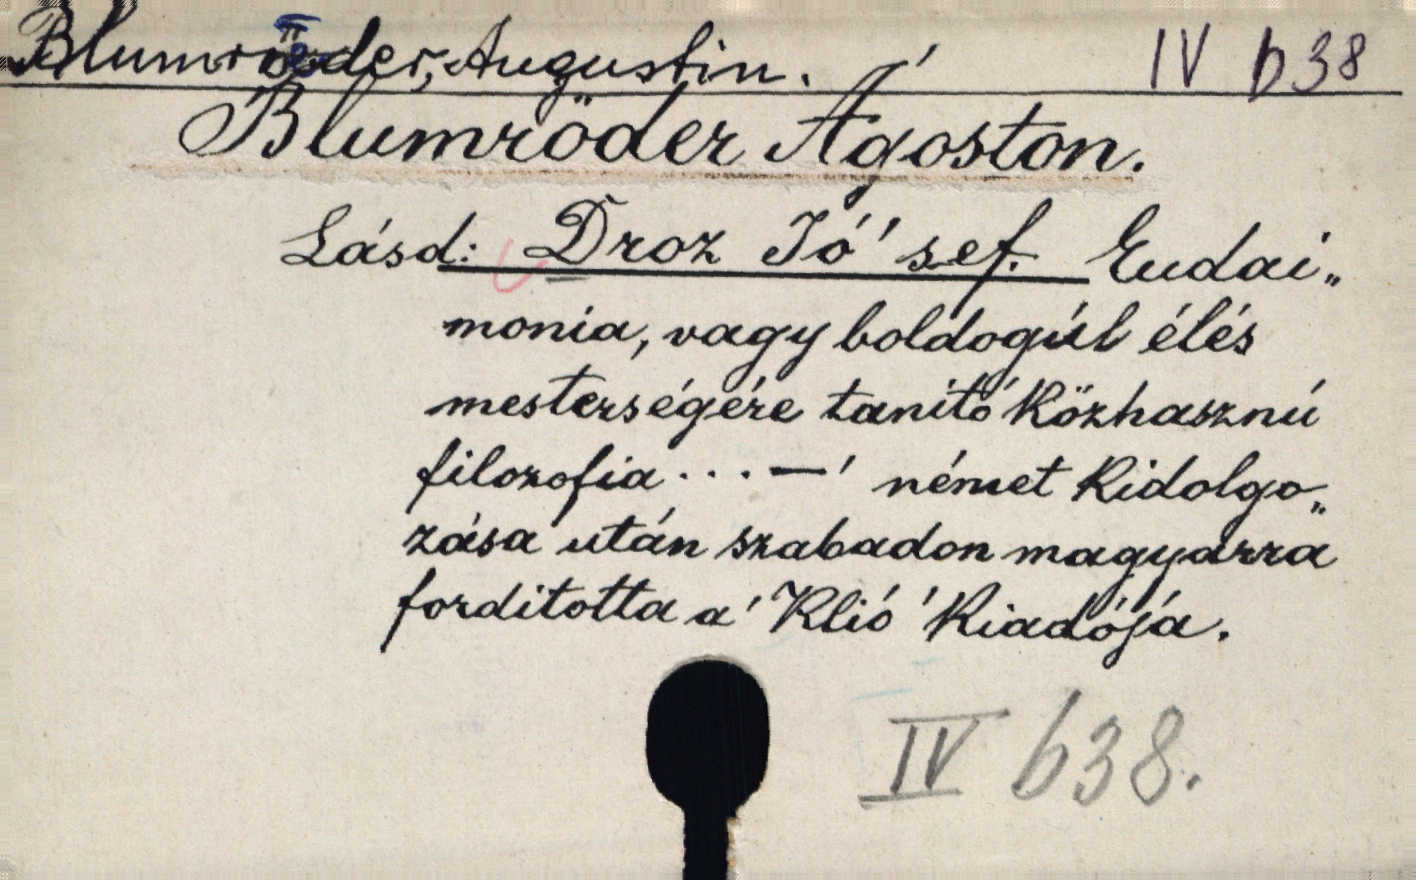 Blumröder, Augustin. IV b38
Blumröder Ágoston.
Lásd: Droz Jó'sef. Eudai„
monia, vagy boldogúl élés
mesterségére tanító közhasznú
filozofia...—' német kidolgo„
zása után szabadon magyarra
forditotta a' Klió' kiadója.
IV b38.